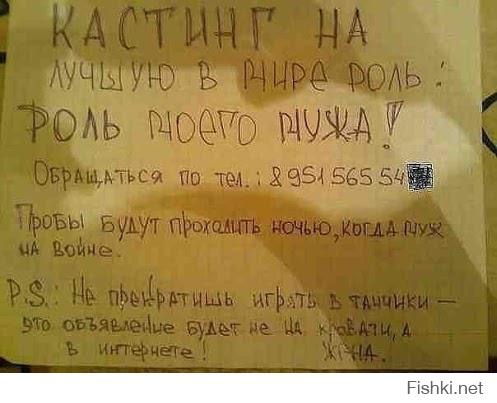 КАСТИНГ НА
ЛУЧШУЮ В МИРЕ РОЛЬ:
РОЛЬ МОЕГО МУЖА!
ОБРАЩАТЬСЯ ПО ТЕЛ.: 8 951 565 54
ПРОБЫ БУДУТ ПРОХОДИТЬ НОЧЬЮ, КОГДА МУЖ
НА ВОЙНЕ.
P.S.: НЕ ПРЕКРАТИШЬ ИГРАТЬ В ТАНЧИКИ —
ЭТО ОБЪЯВЛЕНИЕ БУДЕТ НЕ НА КРОВАТИ, А
В ИНТЕРНЕТЕ! ЖЕНА.
Fishki.net